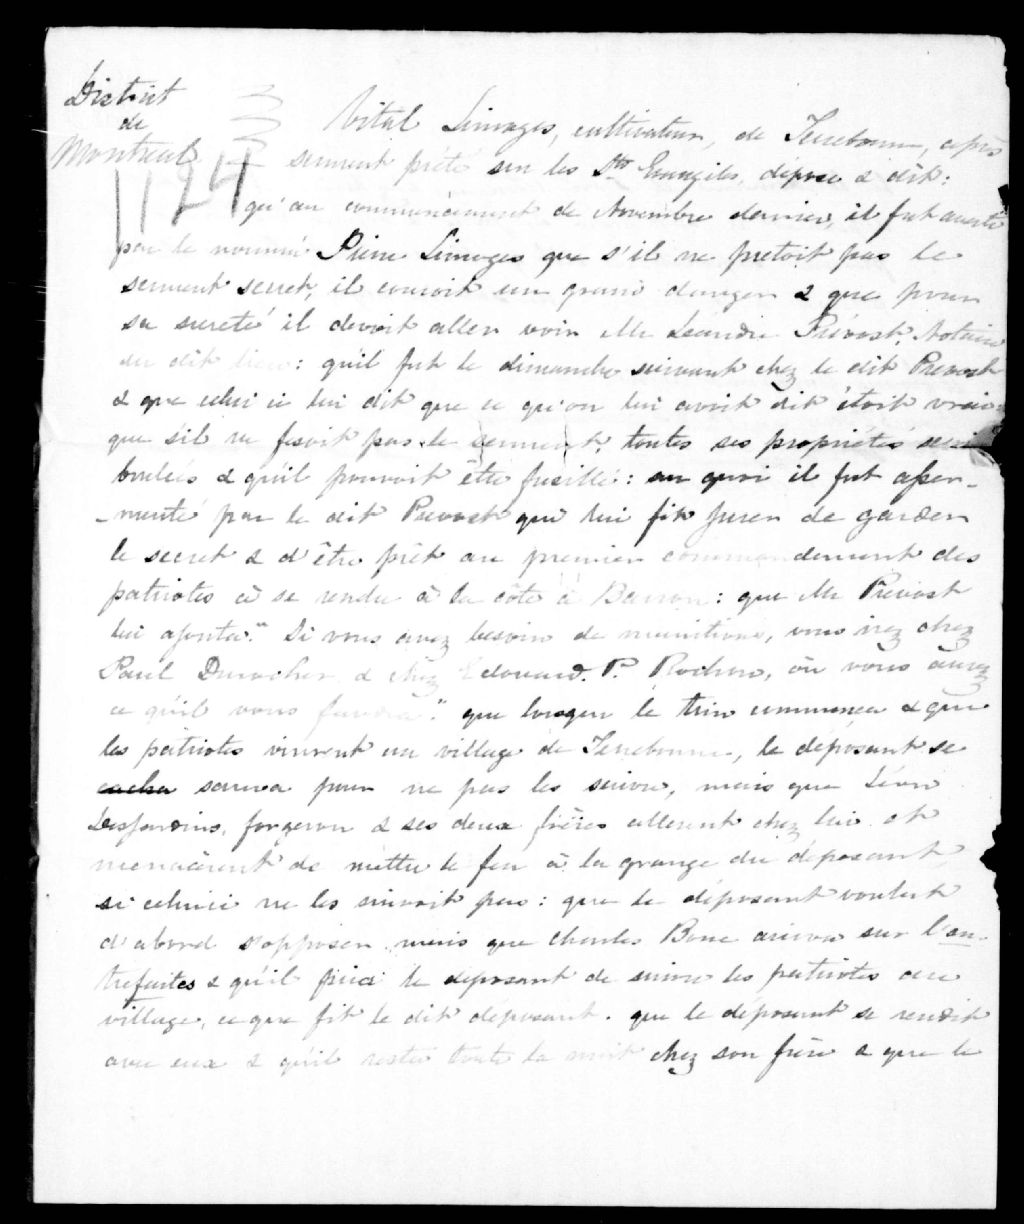 District
de
Montreal
1124
Vital Limoges, cultivateur, de Terrebonne, après
serment prêté sur les Sts Evangiles, dépose & dit:
qu'au commencement de Novembre dernier, il fut averti
par le nommé Pierre Limoges que s'il ne pretoit pas le
serment secret, il couroit un grand danger & que pour
sa sureté il devoit aller voir Mr Léandre Prévost, Notaire
du dit lieu: qu'il fut le dimanche suivant chez le dit Prevost
& que celui ci lui dit que ce qu'on lui avoit dit étoit vrai
que s'il ne fesoit pas le serment, toutes ses propriétés
brulées & qu'il pouvoit être fusillé: au quoi il fut asser-
-menté par le dit Prevost qui lui fit jurer de garder
le secret & d'être prêt au premier commandement des
patriotes à se rendre à la côte à Barron: que Mr Prévost
lui ajouta: "Si vous avez besoin de munitions, vous irez chez
Paul Durocher & chez Edouard. P. Rochon, où vous aurez
ce qu'il vous faudra". que lorsque le train commença & que
les patriotes vinrent au village de Terrebonne, le déposant se
cacha sauva pour ne pas les suivre, mais que Léon
Desjardins, forgeron & ses deux frères allerent chez lui et
menacèrent de mettre le feu à la grange du déposant
si celuici ne les suivoit pas: que le déposant voulut
d'abord s'opposer mais que Charles Bone arriva sur l'en-
trefaites & qu'il pria le déposant de suivre les patriotes au
village, ce que fit le dit déposant. que le déposant se rendit
avec eux & qu'il resta toute la nuit chez son frère & que le